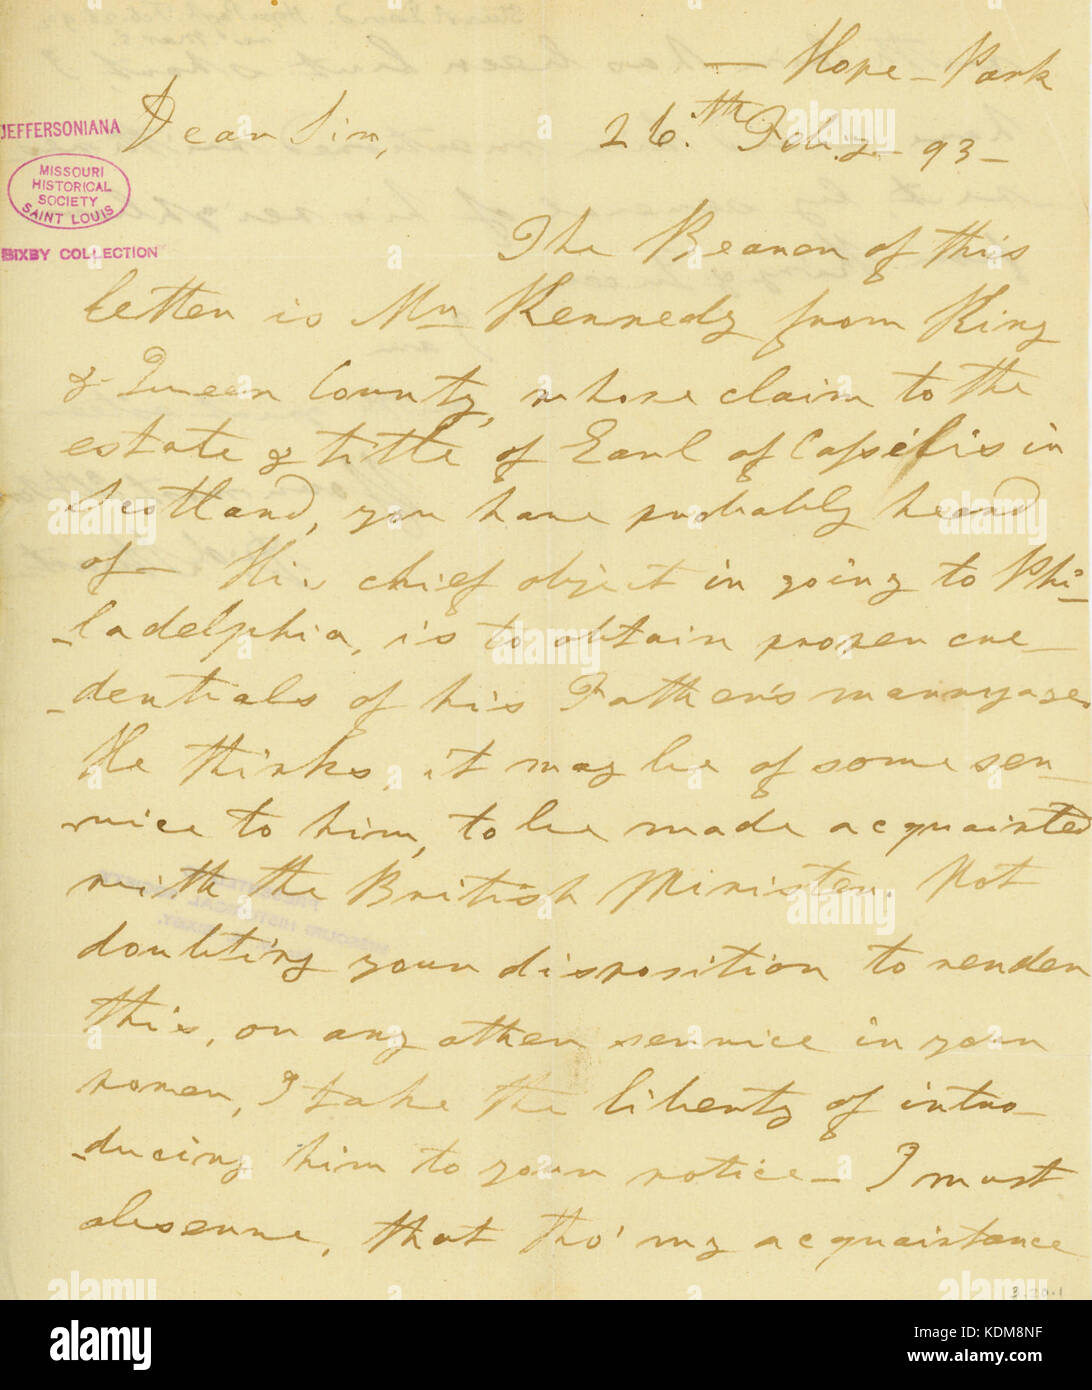 — Hope - Park
Dear Sir,
26.th Feb.y - 93 -
JEFFERSONIANA
MISSOURI
HISTORICAL
SOCIETY
SAINT LOUIS
BIXBY COLLECTION
The Bearer of this
letter is Mr Kennedy from King
& Queen County, whose claim to the
estate & title of Earl of Cassilis in
Scotland, you have probably heard
of - His chief object in going to Phi-
-ladelphia, is to obtain proper cre-
-dentials of his Father's marryage.
He thinks, it may be of some ser-
-vice to him, to be made acquainted
with the British Minister. Not
doubting your disposition to render
this, or any other service in your
power, I take the liberty of intro-
-ducing him to your notice - I must
observe, that tho' my acquaintance
3.20.1
alamy
Image ID: KDM8NF
www.alamy.com